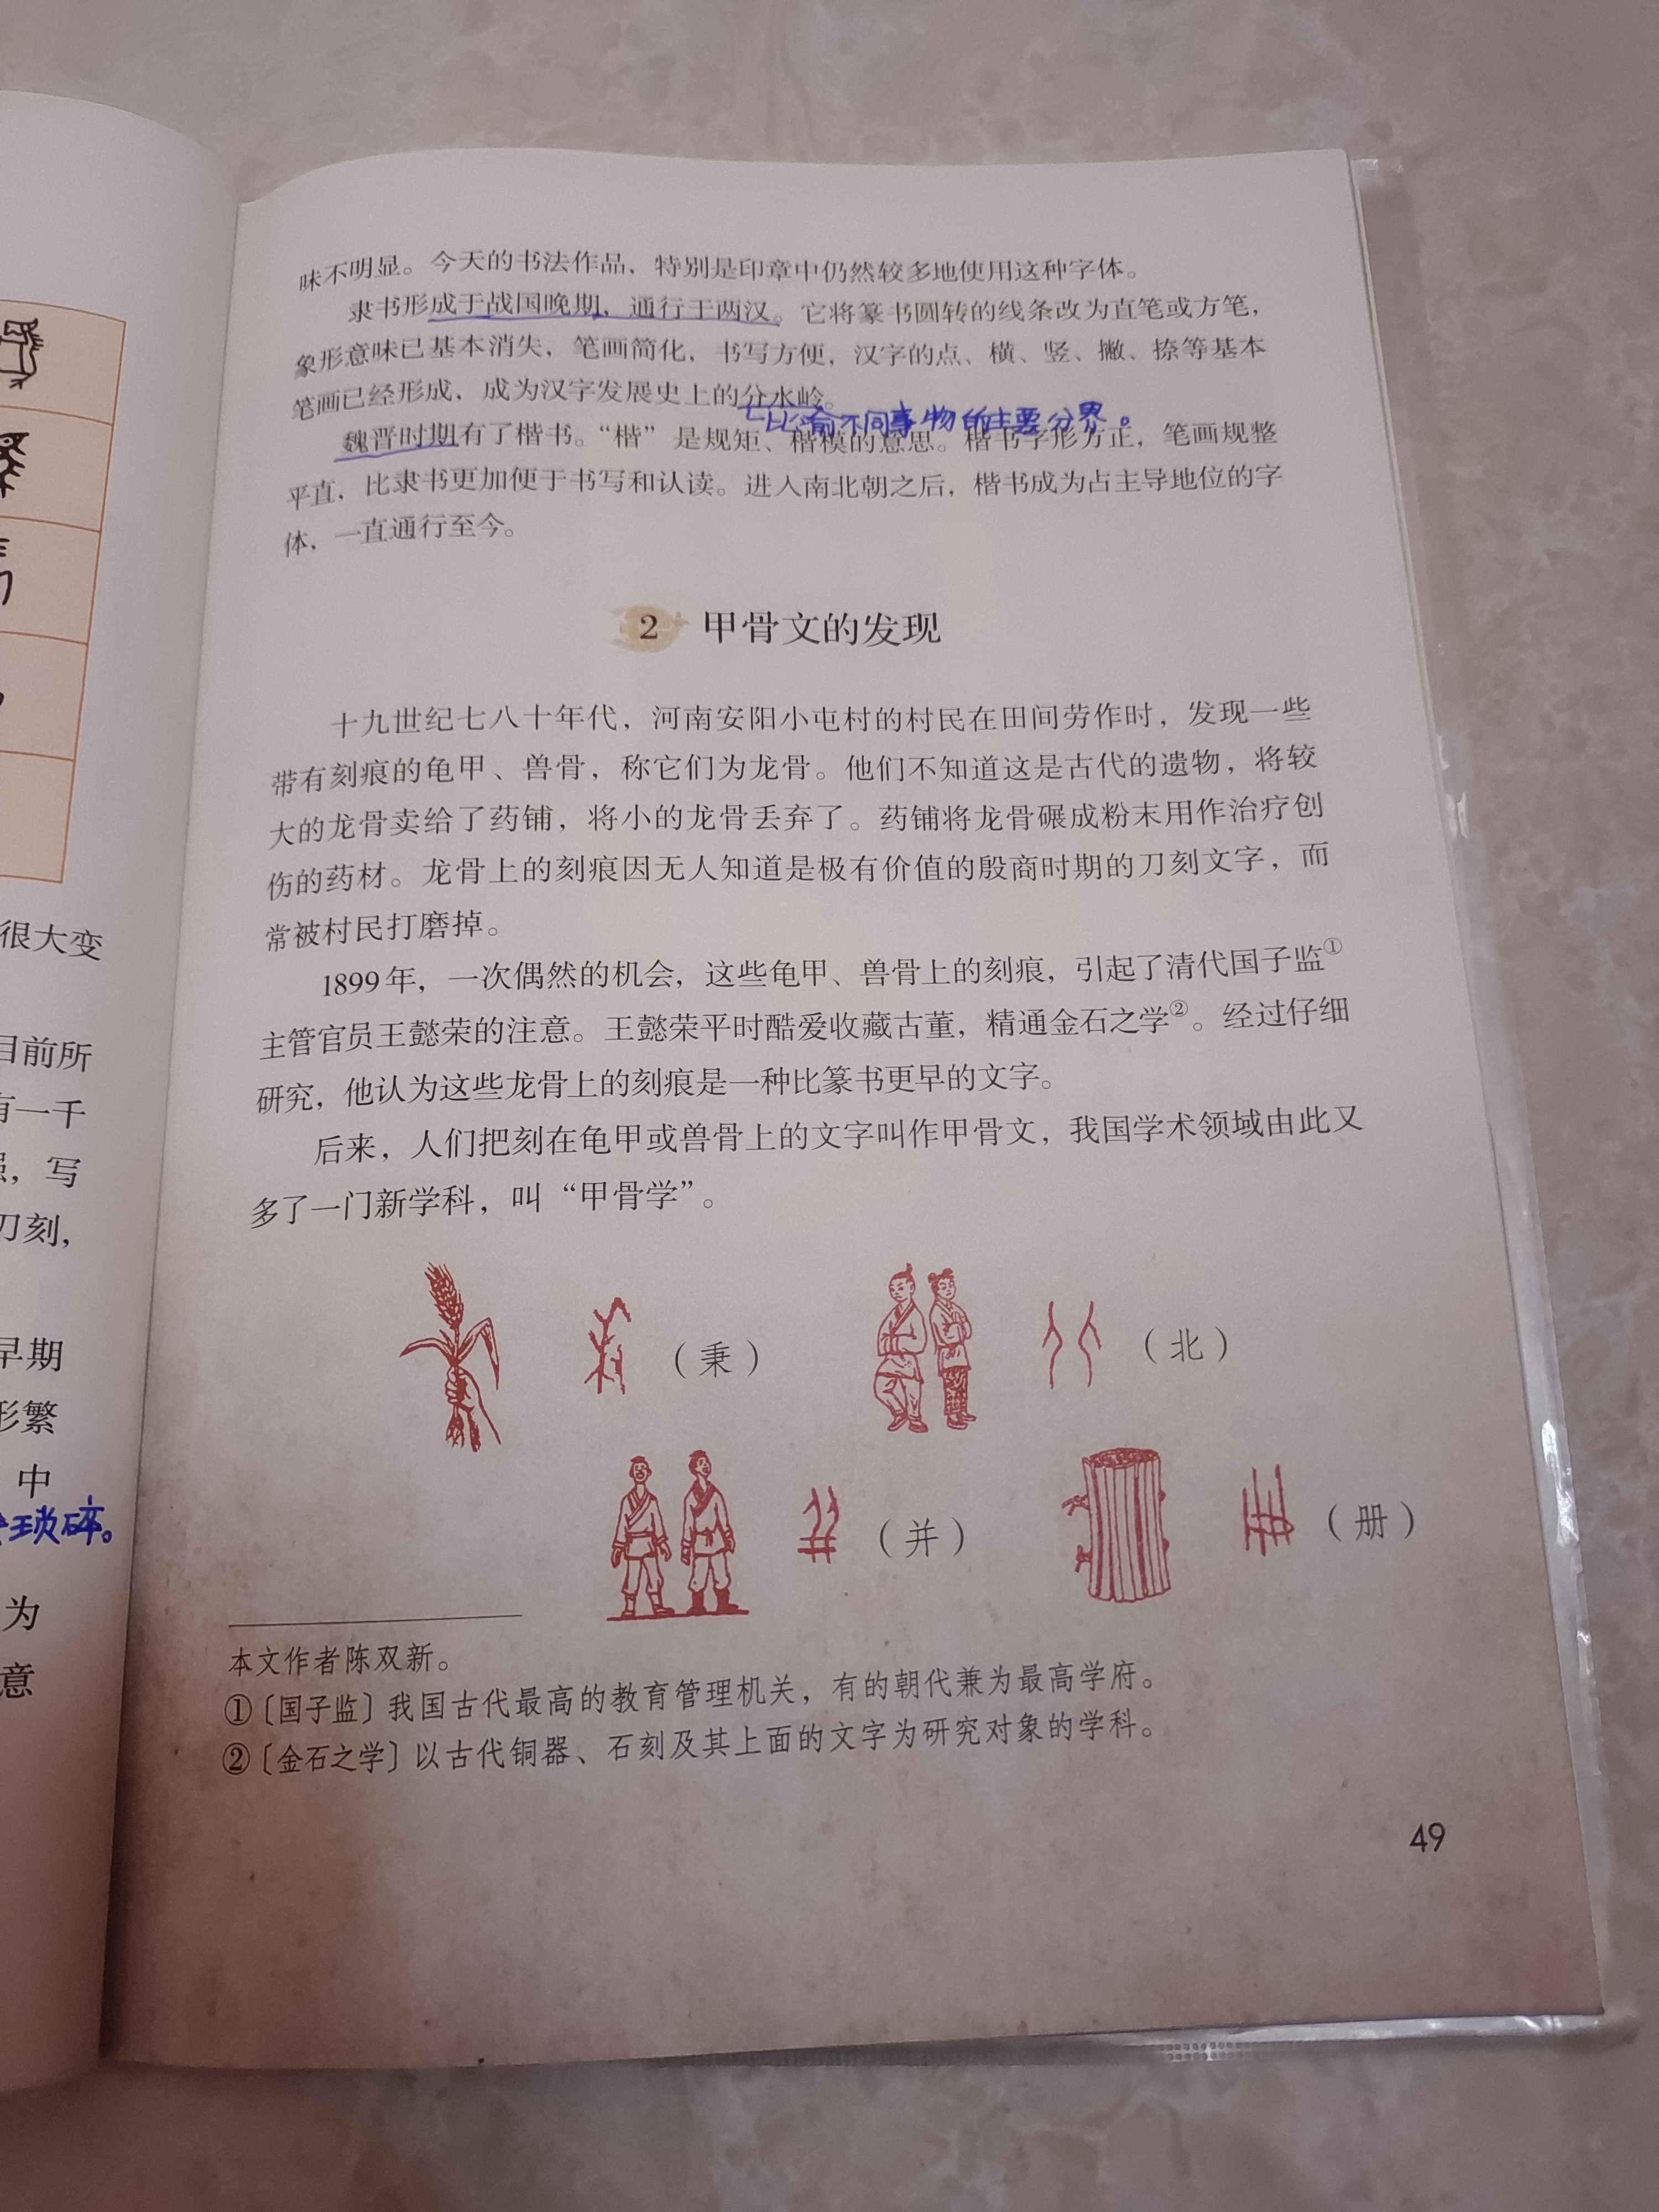 很大变
目前所
有一千
写
刀刻，
早期
形繁
中
琐碎。
为
意
味不明显。今天的书法作品，特别是印章中仍然较多地使用这种字体。
隶书形成于战国晚期，通行于两汉。它将篆书圆转的线条改为直笔或方笔，
象形意味已基本消失，笔画简化，书写方便，汉字的点、横、竖、撇、捺等基本
笔画已经形成，成为汉字发展史上的分水岭。
比喻不同事物的主要分界。
魏晋时期有了楷书。“楷”是规矩、楷模的意思。楷书字形方正，笔画规整
平直，比隶书更加便于书写和认读。进入南北朝之后，楷书成为占主导地位的字
体，一直通行至今。
2 甲骨文的发现
十九世纪七八十年代，河南安阳小屯村的村民在田间劳作时，发现一些
带有刻痕的龟甲、兽骨，称它们为龙骨。他们不知道这是古代的遗物，将较
大的龙骨卖给了药铺，将小的龙骨丢弃了。药铺将龙骨碾成粉末用作治疗创
伤的药材。龙骨上的刻痕因无人知道是极有价值的殷商时期的刀刻文字，而
常被村民打磨掉。
1899年，一次偶然的机会，这些龟甲、兽骨上的刻痕，引起了清代国子监①
主管官员王懿荣的注意。王懿荣平时酷爱收藏古董，精通金石之学②。经过仔细
研究，他认为这些龙骨上的刻痕是一种比篆书更早的文字。
后来，人们把刻在龟甲或兽骨上的文字叫作甲骨文，我国学术领域由此又
多了一门新学科，叫“甲骨学”。
（秉） （北）
（并） （册）
本文作者陈双新。
①〔国子监〕我国古代最高的教育管理机关，有的朝代兼为最高学府。
②〔金石之学〕以古代铜器、石刻及其上面的文字为研究对象的学科。
49